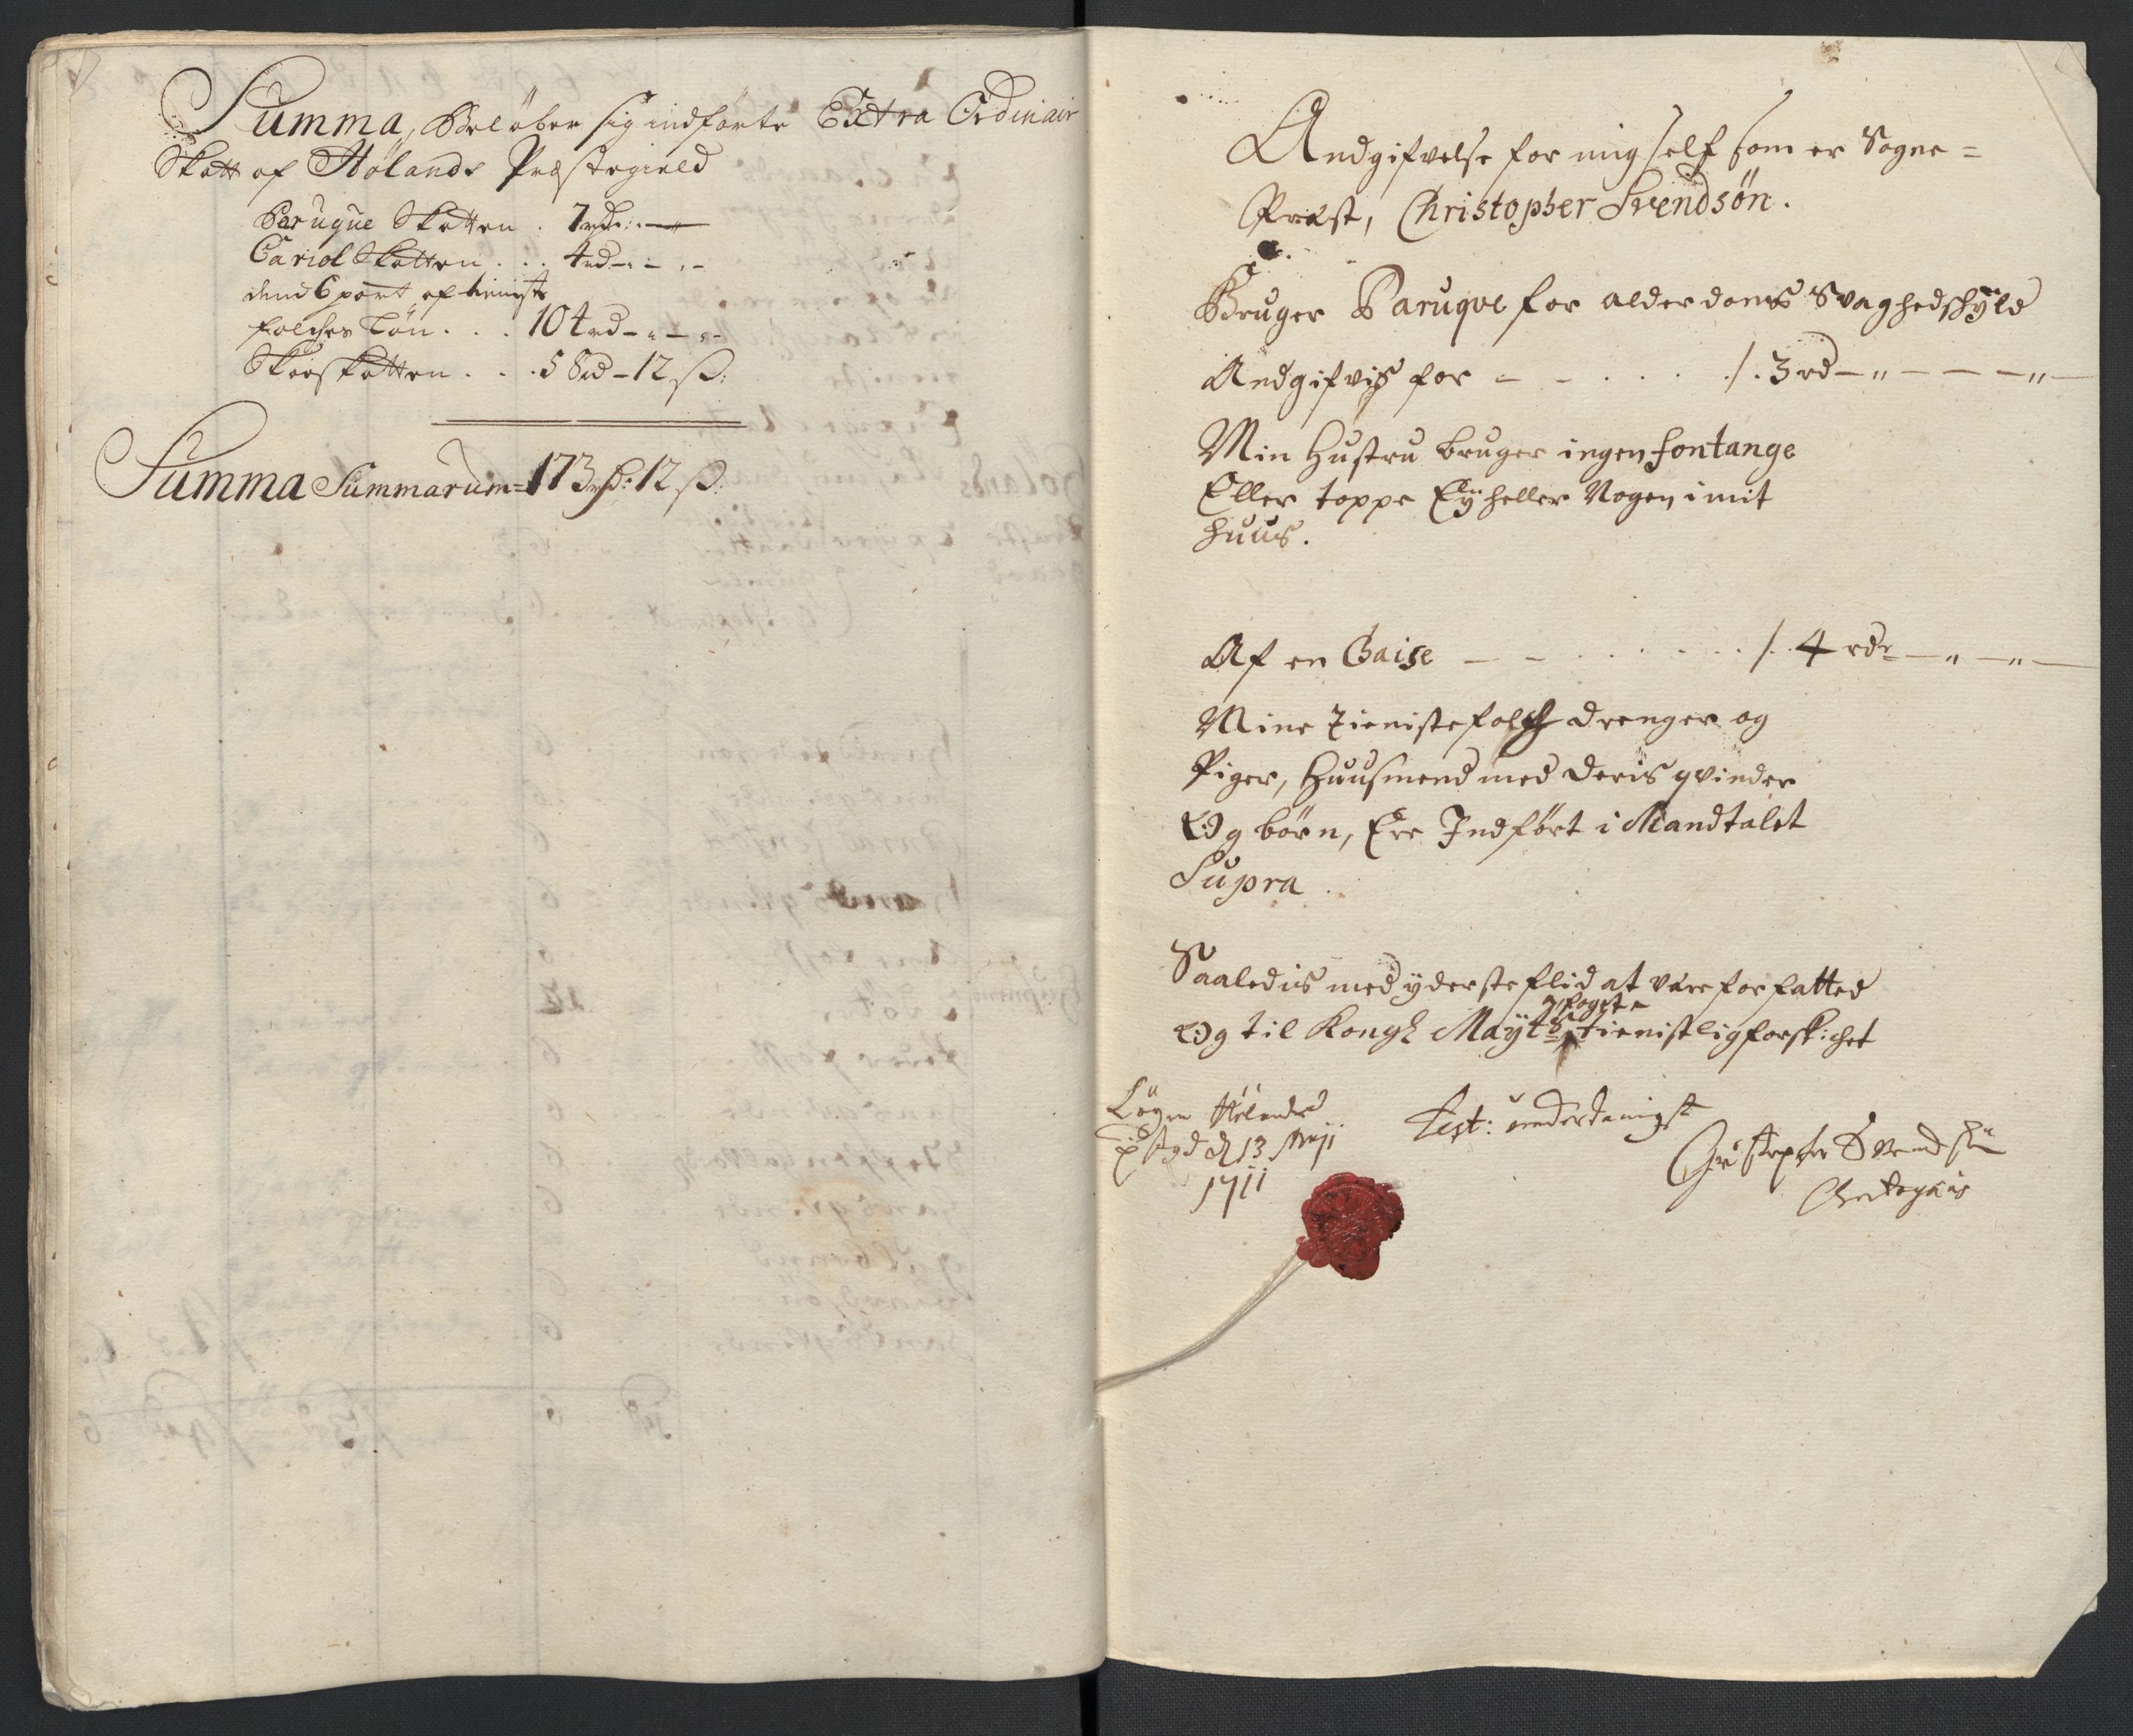 Summa, Beløber sig indførte Extra Ordinair
Skatt af Hølands Præstegield
Peruque Skatten . 7 rdr: -
Cariol Skatten . . . 4 rd - " - " -
dend 6 part af tienste
folches Løn . . . 104 rd - " - " -
Skoeskatten . . . 58 rd - 12 ß:
Summa Summarum = 173 rdr: 12 ß:
Andgifvelse for mig self som er Sogne =
Præst, Christopher Svendsøn.
Bruger Paruqve for alderdoms Svaghed skyld
Andgifvis for - - . . . . /. 3 rd - " - - - " -
Min Hustru bruger ingen fontange
Eller toppe Eÿ heller Nogen i mit
huus.
Af en Chaise - - . . . . . . /. 4 rdr - " - " -
Mine tienistefolch drenger og
Piger, Huusmend med deris qvinder
Og børn, Ere Indført i Mandtalet
Supra .
Saaledis med yderste flid at være forfatted
Og til Kongl Mayts tienistlig forskichet
fogste
Hølands
d 13 Maji
1711
Test: underdanigst
Christopher Svendsøn